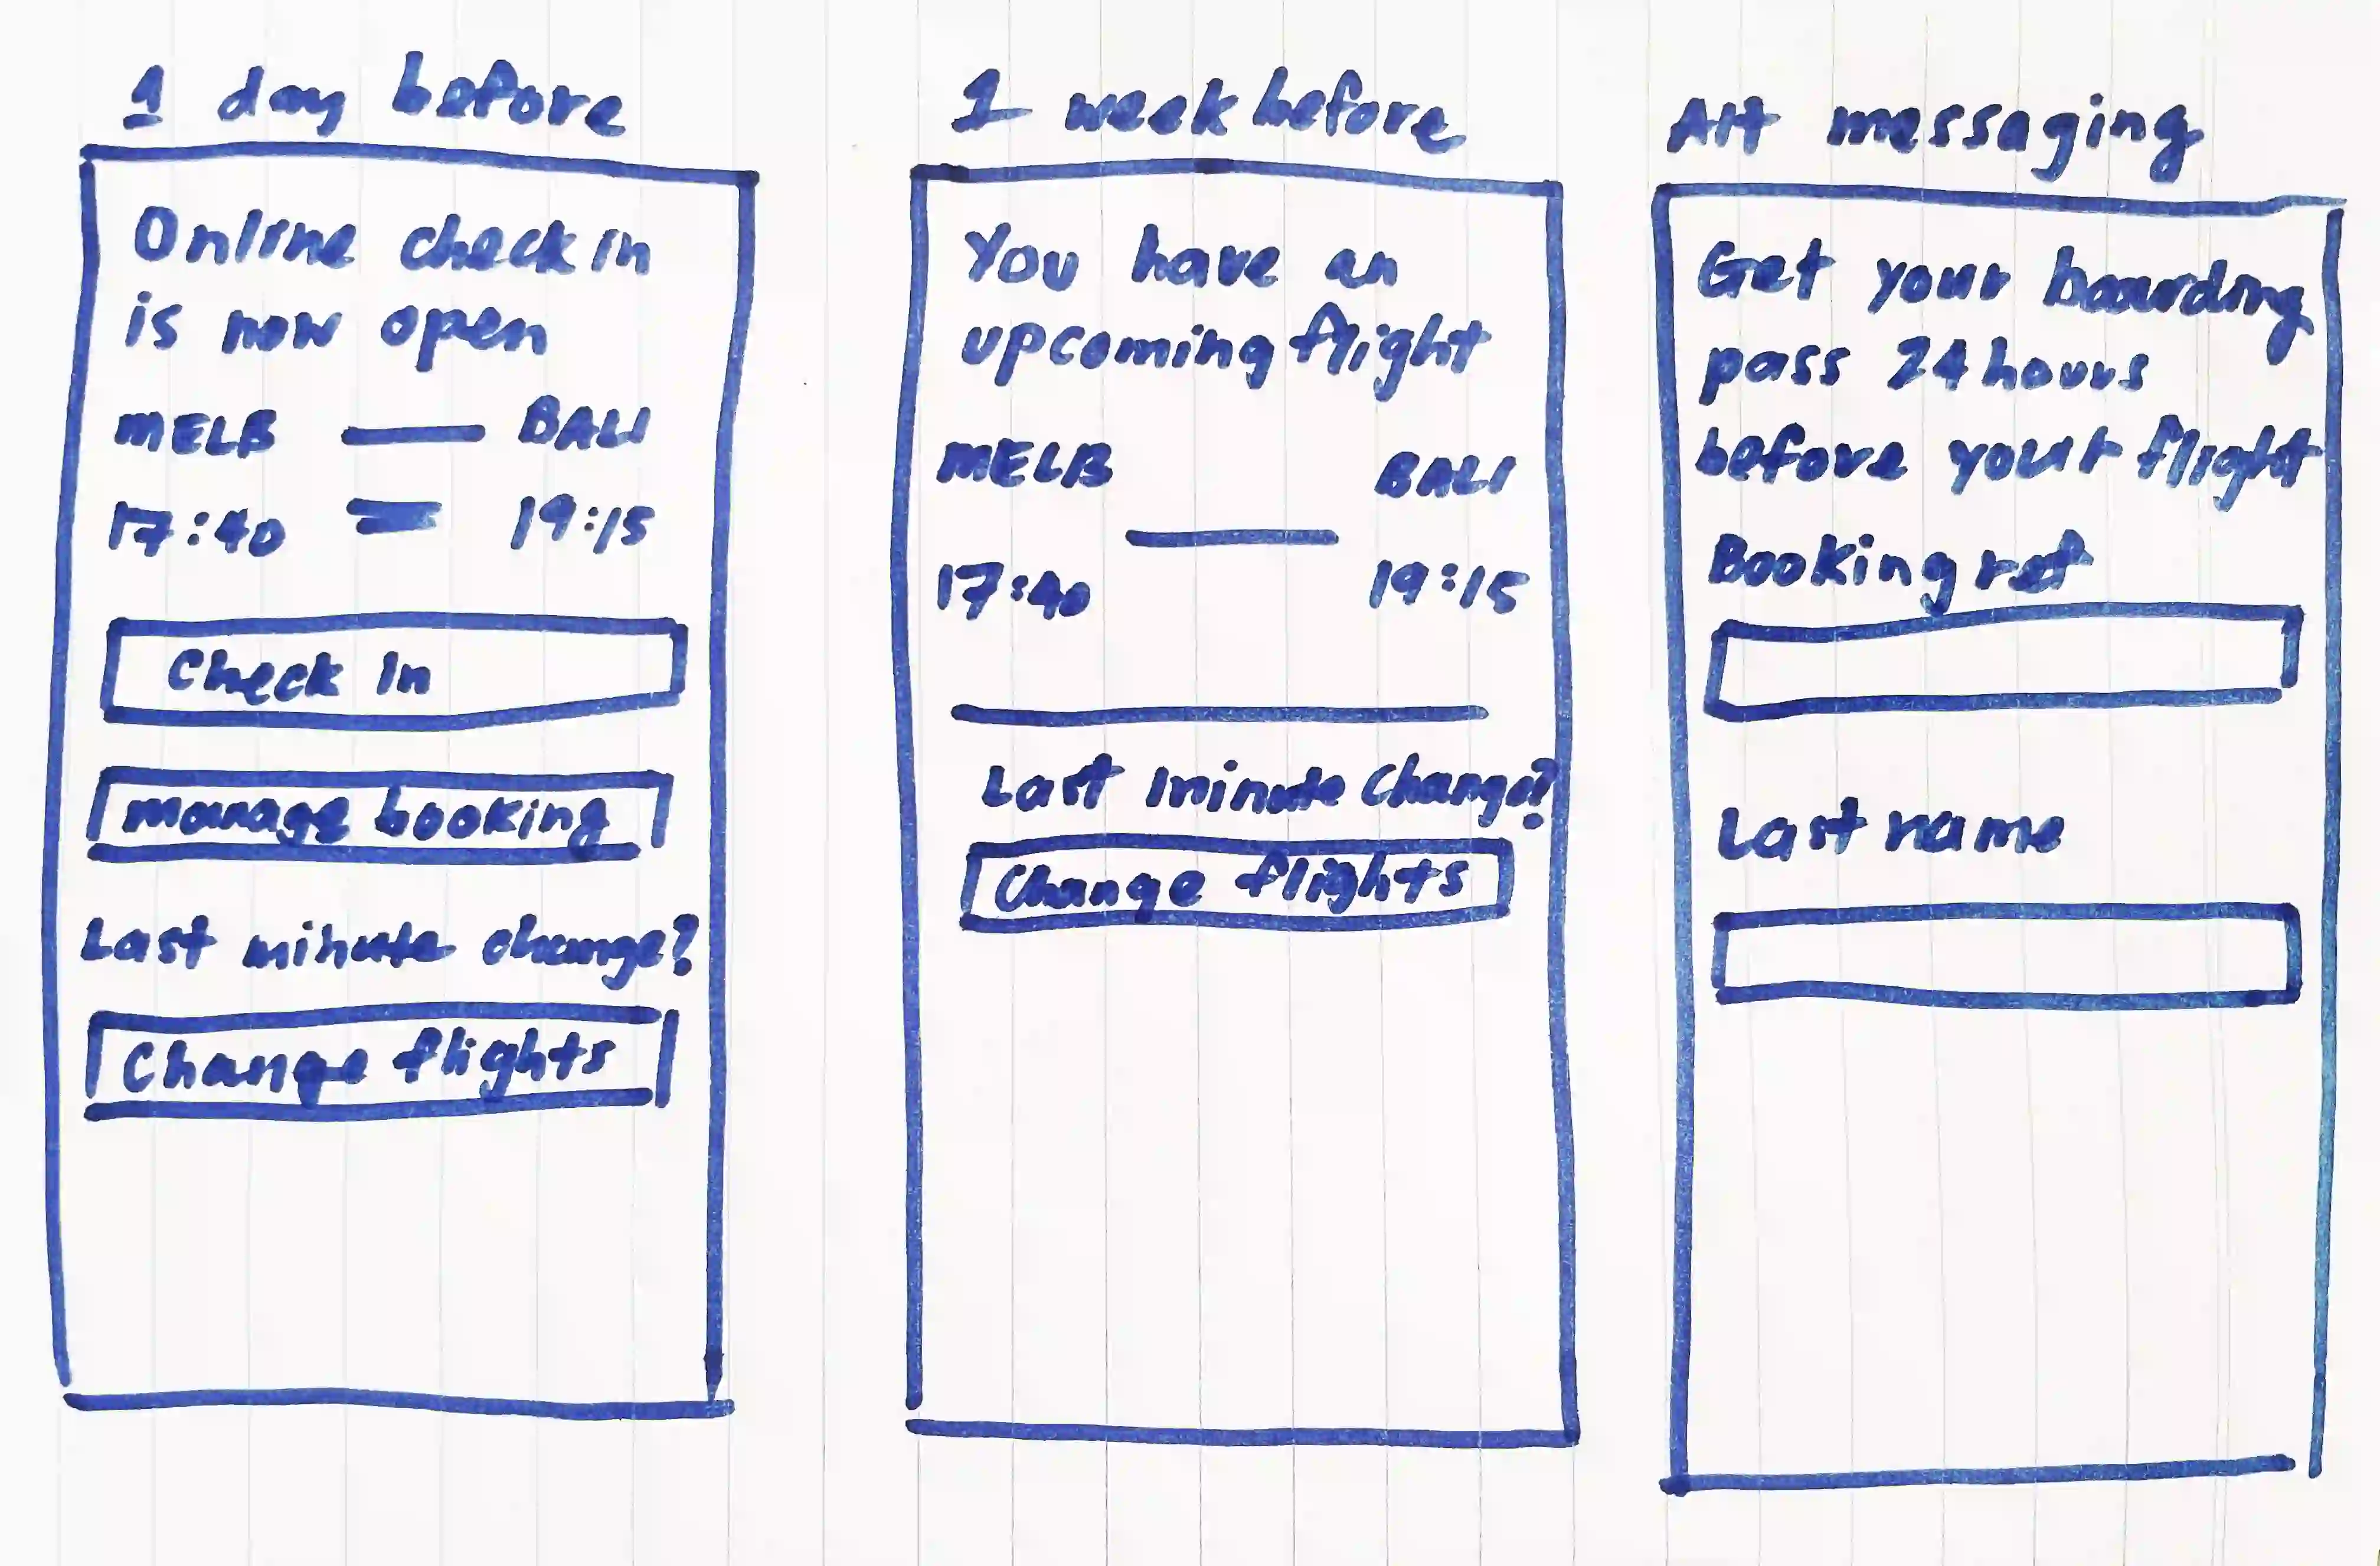 1 day before
Online check in
is now open
MELB — BALI
17:40 19:15
Check In
manage booking
Last minute change?
Change flights
1 week before
You have an
upcoming flight
MELB BALI
17:40 19:15
Last minute change?
Change flights
Alt messaging
Get your boarding
pass 24 hours
before your flight
Booking ref
Last name